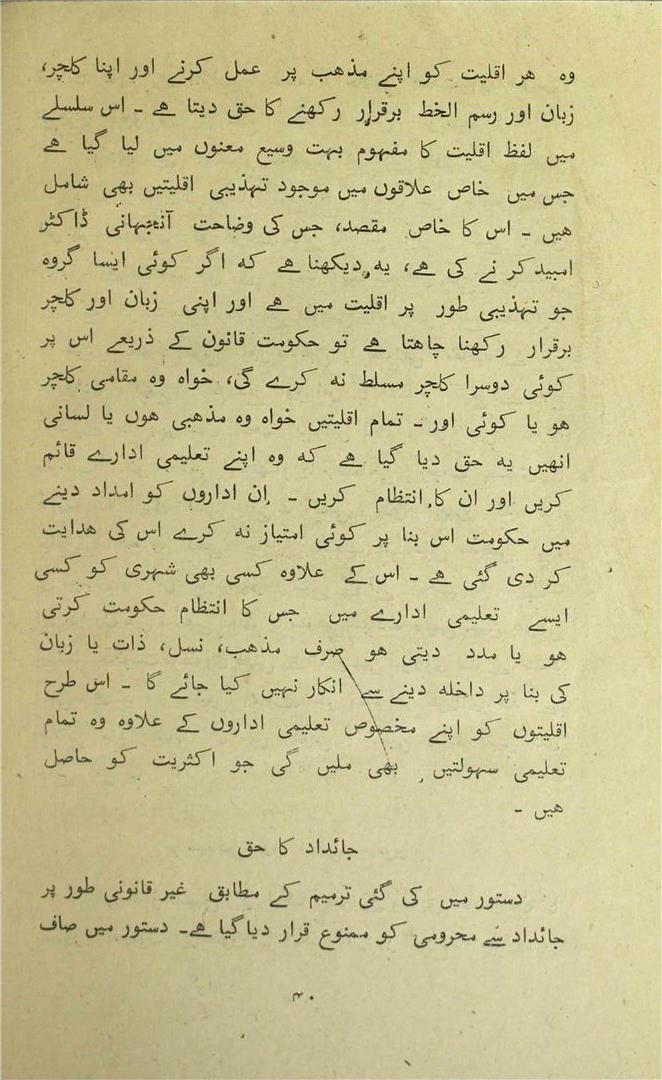 وہ ھر اقلیت کو اپنے مذھب پر عمل کرنے اور اپنا کلچر،
زبان اور رسم الخط برقرار رکھنے کا حق دیتا ھے ۔ اس سلسلے
میں لفظ اقلیت کا مفہوم بہت وسیع معنوں میں لیا گیا ھے
جس میں خاص علاقوں میں موجود تہذیبی اقلیتیں بھی شامل
ھیں ۔ اس کا خاص مقصد، جس کی وضاحت آنجہانی ڈاکٹر
امبیدکر نے کی ھے، یہ دیکھنا ھے کہ اگر کوئی ایسا گروہ
جو تہذیبی طور پر اقلیت میں ھے اور اپنی زبان اور کلچر
برقرار رکھنا چاھتا ھے تو حکومت قانون کے ذریعے اس پر
کوئی دوسرا کلچر مسلط نہ کرے گی، خواہ وہ مقامی کلچر
ھو یا کوئی اور ۔ تمام اقلیتیں خواہ وہ مذھبی ھوں یا لسانی
انھیں یہ حق دیا گیا ھے کہ وہ اپنے تعلیمی ادارے قائم
کریں اور ان کا انتظام کریں ۔ ان اداروں کو امداد دینے
میں حکومت اس بنا پر کوئی امتیاز نہ کرے اس کی ھدایت
کر دی گئی ھے ۔ اس کے علاوہ کسی بھی شہری کو کسی
ایسے تعلیمی ادارے میں جس کا انتظام حکومت کرتی
ھو یا مدد دیتی ھو صرف مذھب، نسل، ذات یا زبان
کی بنا پر داخلہ دینے سے انکار نہیں کیا جائے گا ۔ اس طرح
اقلیتوں کو اپنے مخصوص تعلیمی اداروں کے علاوہ وہ تمام
تعلیمی سہولتیں بھی ملیں گی جو اکثریت کو حاصل
ھیں ۔
جائداد کا حق
دستور میں کی گئی ترمیم کے مطابق غیر قانونی طور پر
جائداد سے محرومی کو ممنوع قرار دیا گیا ھے۔ دستور میں صاف
۴۰